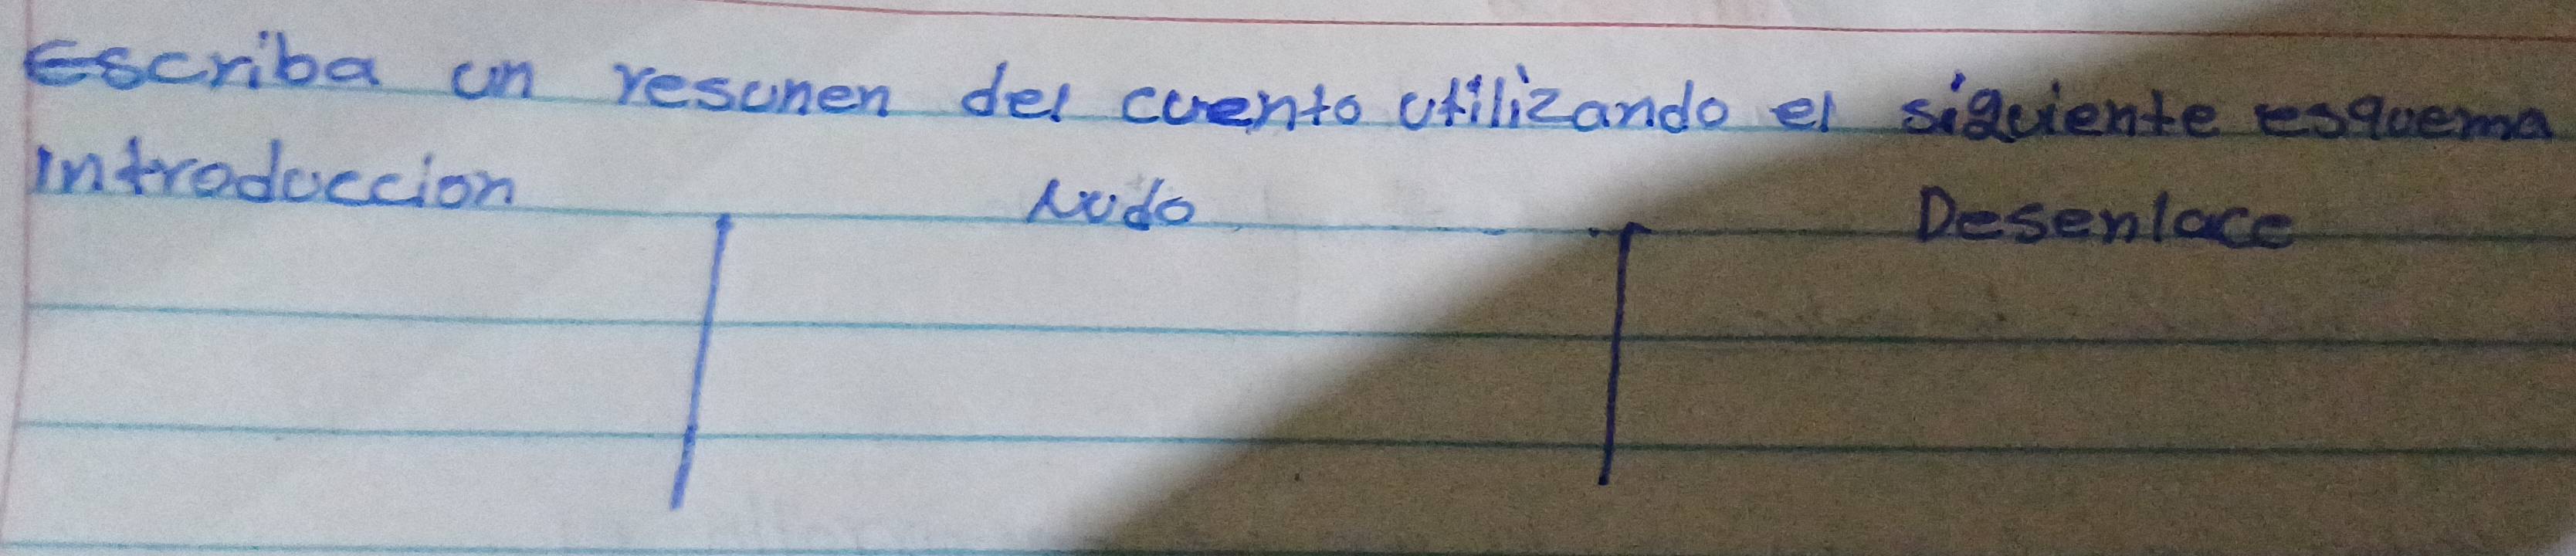 Escriba un resunen del cuento utilizando el siguiente esquema
Introduccion Nudo Desenlace